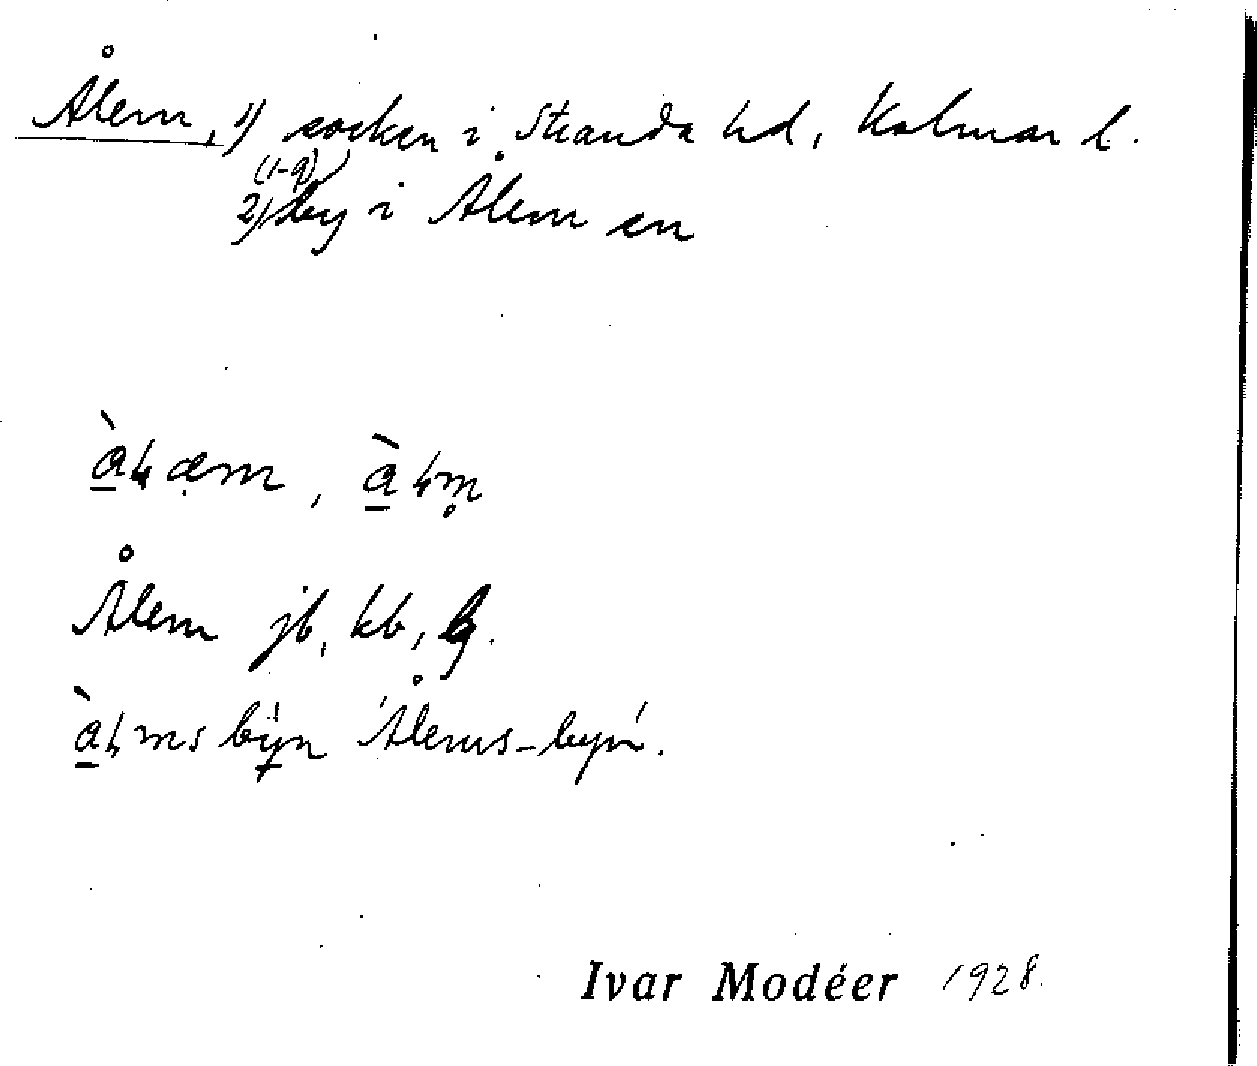 Ålem, 1) socken i Stranda hd, Kalmar l.
(1-9)
2) by i Ålem sn
Ålem jb, kb,
'Ålems-byn'.
Ivar Modéer 1928.